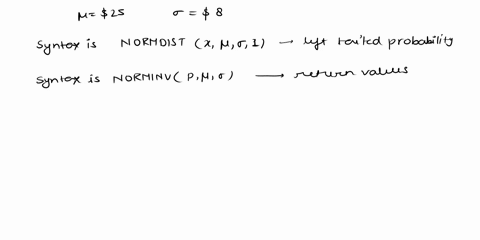 μ = $25 σ = $ 8
Syntax is NORMDIST (x, μ, σ, 1) → left tailed probability
Syntax is NORMINV( P, μ, σ) → return values